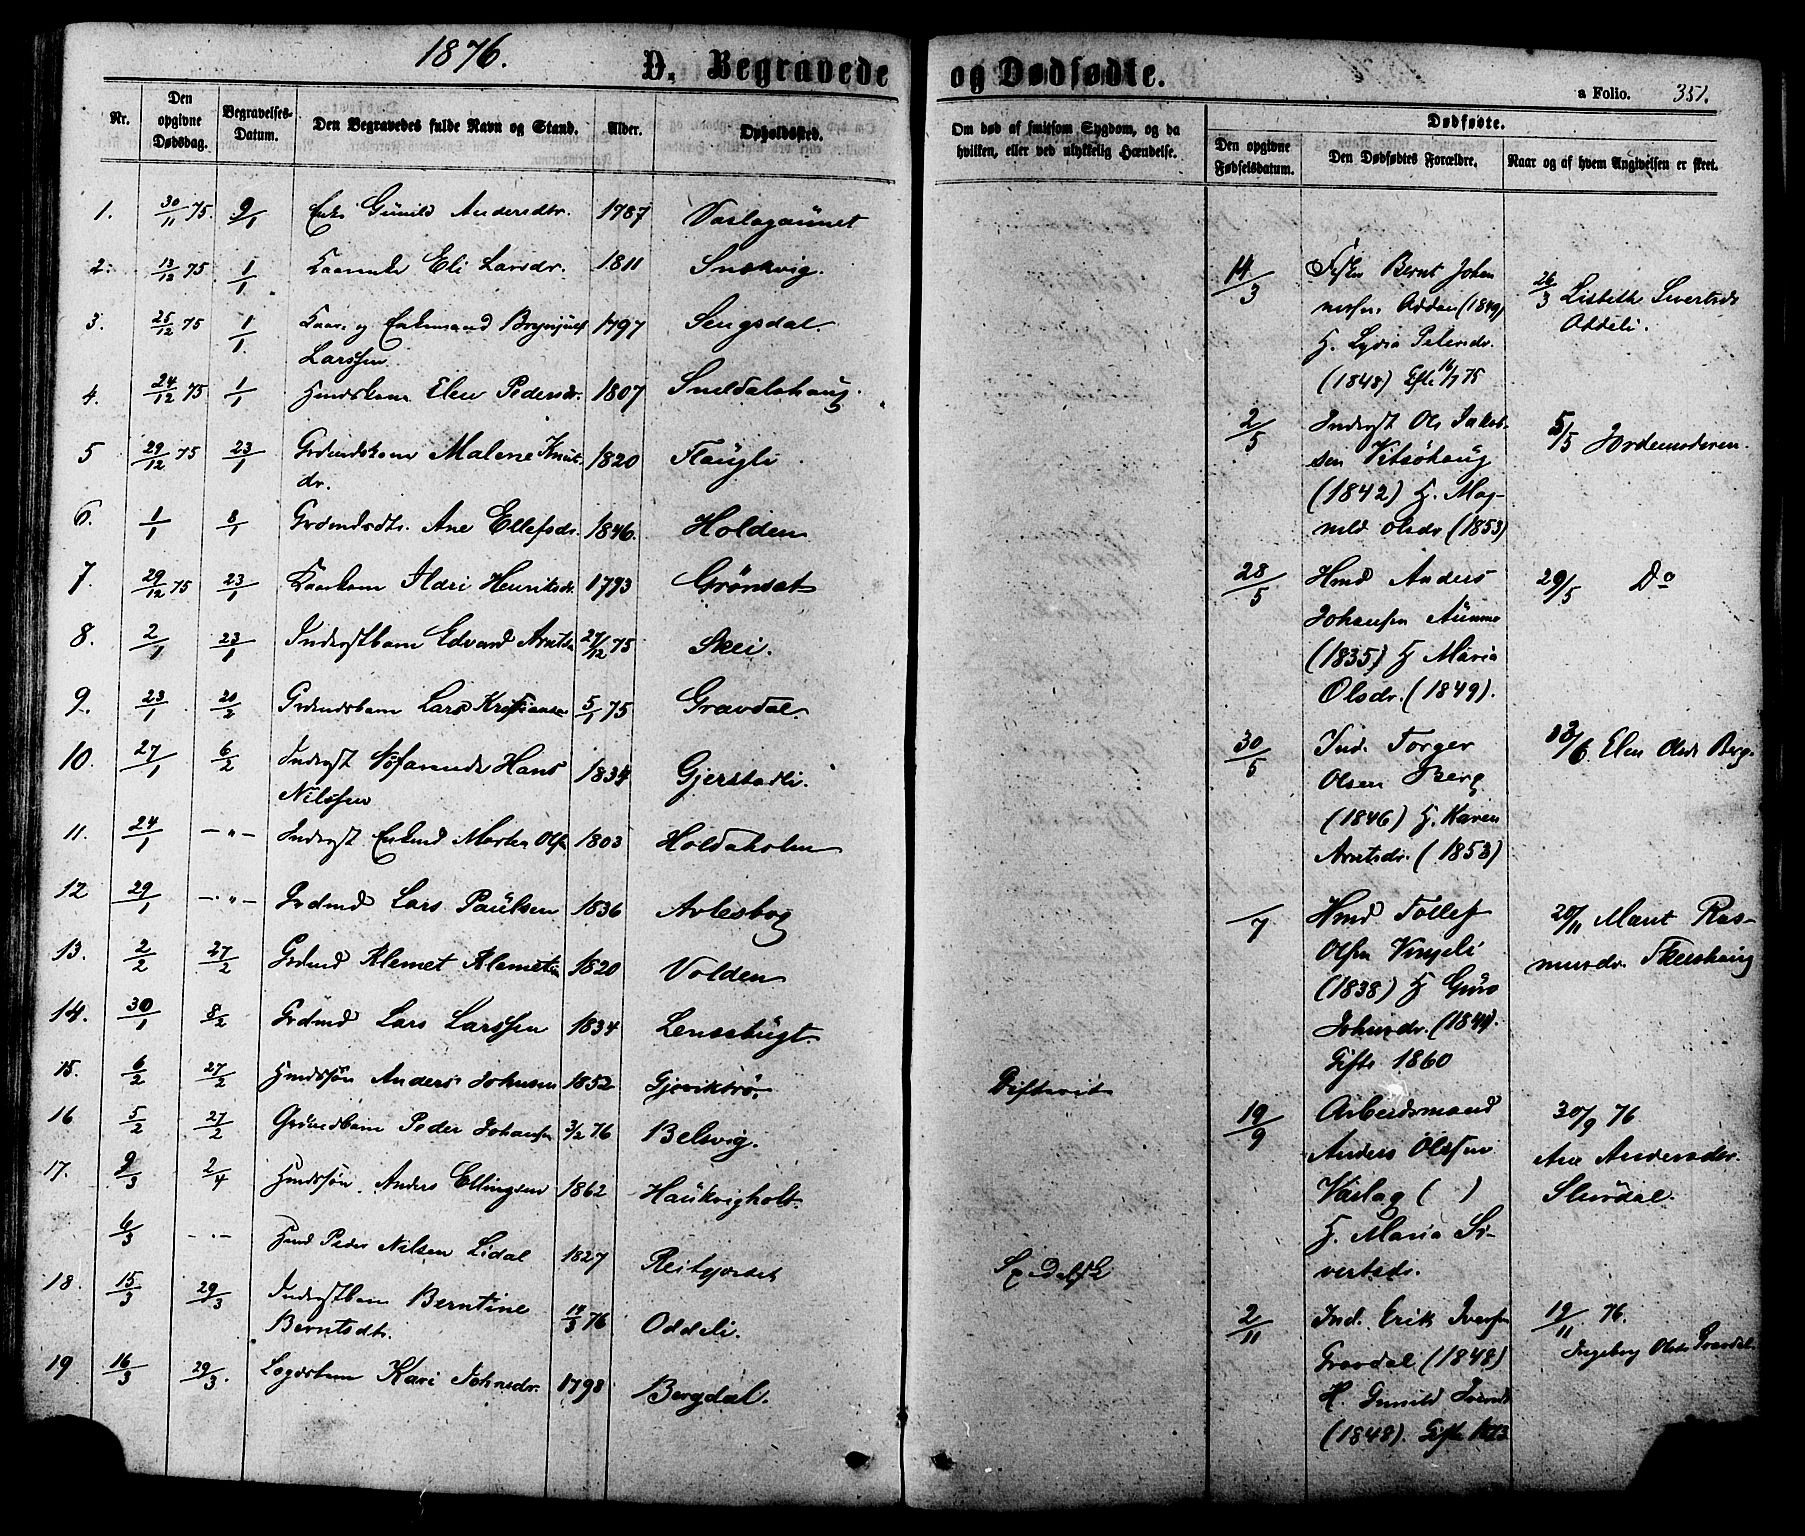 1876.
D. Begravede og Dødfødte.
a Folio. 351.
Nr.
Den opgivne Dødsdag.
Begravelses-Datum.
Den Begravedes fulde Navn og Stand.
Alder.
Opholdssted.
Om død af smitsom Sygdom, og da hvilken, eller ved ulykkelig Hændelse.
Dødfødte.
Den opgivne Fødselsdatum.
Den Dødfødtes Forældre.
Naar og af hvem Angivelsen er skeet.
1. 30/11 75. 9/1 Enke Gunild Andersdtr. 1787 Vaslagaunet
2. 13/12 75 1/1 Eli Larsdr. 1811 Snekvig.
3. 25/12 75 1/1 Kaar. og Enkemand 1797 Sengsdal.
Larssen
4. 24/12 75 1/1 Husmkone Elen Pedersdr. 1807
5 29/12 75 23/1 Grdmdskone Malene Knuts- 1820 Flaugli
dr.
6. 1/1 8/1 Grdmdsdtr. Ane Ellefsdr. 1846. Holden
7. 29/12 75 23/1 Kaarkone Ildri Henriksdr. 1793 Grönset
8. 2/1 23/1 Inderstbarn Edvard Arntsen 27/12 75 Skei.
9. 23/1 20/2 Grdmdsbarn Lars Kristiansen 5/1 75 Gravdal.
10. 27/1 6/2 Inderst Hans 1834 Gjerstadli.
Nilssen
11. 24/1 -"- Inderst Enkemd Morten Olsen 1803 Holdaholm
12 29/1 -"- Grdmd Lars Paulsen 1836
13. 2/2 27/2 Grdmd Klemet Klemetsen 1820 Volden
14. 30/1 8/2 Grdmd Lars Larssen 1834 Lensebugt.
15. 6/2 27/2 Hmdssön Anders Johnsen 1852 Gjeviktrö. Difterit
16 5/2 27/2 Grdmdsbarn Peder Johansen 3/2 76 Belsvig.
17. 9/3 2/4 Hmdssön Anders Ellingsen 1862 Haukvigholt.
6/3 -"- Hmd Peder Nilsen Lidal 1827 Reitgjerdet Spedalsk
18. 15/3 29/3 Inderstbarn Berntine 14/3 76 Oddeli.
Berntsdtr.
19 16/3 29/3. Lægdskone Kari Johnsdr. 1798 Bergdal.
14/3 Fisker Bernt Johan- 26/3 Lisbeth Sivertsdr
nessen Oddan (1849) Oddeli.
H. Lydia Petersdr.
(1848) Gifte 16/7 75
2/5 Inderst Ole Jakob- 5/5 Jordemoderen.
sen Vitsöhaug
(1842) H. Mag-
nild Olsdr (1853)
28/5 Hmd Anders 29/5 Do
Johansen Aunmo
(1835) H Maria
Olsdr. (1849).
30/5 Ind. Torger /6 Elen Olsdr Berg.
Olsen Berg
(1846) H. Karen
Arntsdr. (1853)
/7 Hmd Tollef 20/11 Marit Ras-
Olsen Vinjeli musdr.
(1838) H Guro
Johnsdr. (1844).
Gifte 1860
19/9 Arbeidsmand 30/9 76
Anders Olssen Ane Andersdr.
Vaslag ( ) Slördal.
H. Maria Si-
vertsdr.
2/11 Ind. Erik Iversen 19/11 76.
Gravdal (1848) Ingeborg Olsdr Gravdal.
H. Gunild
(1848). Gifte 1873